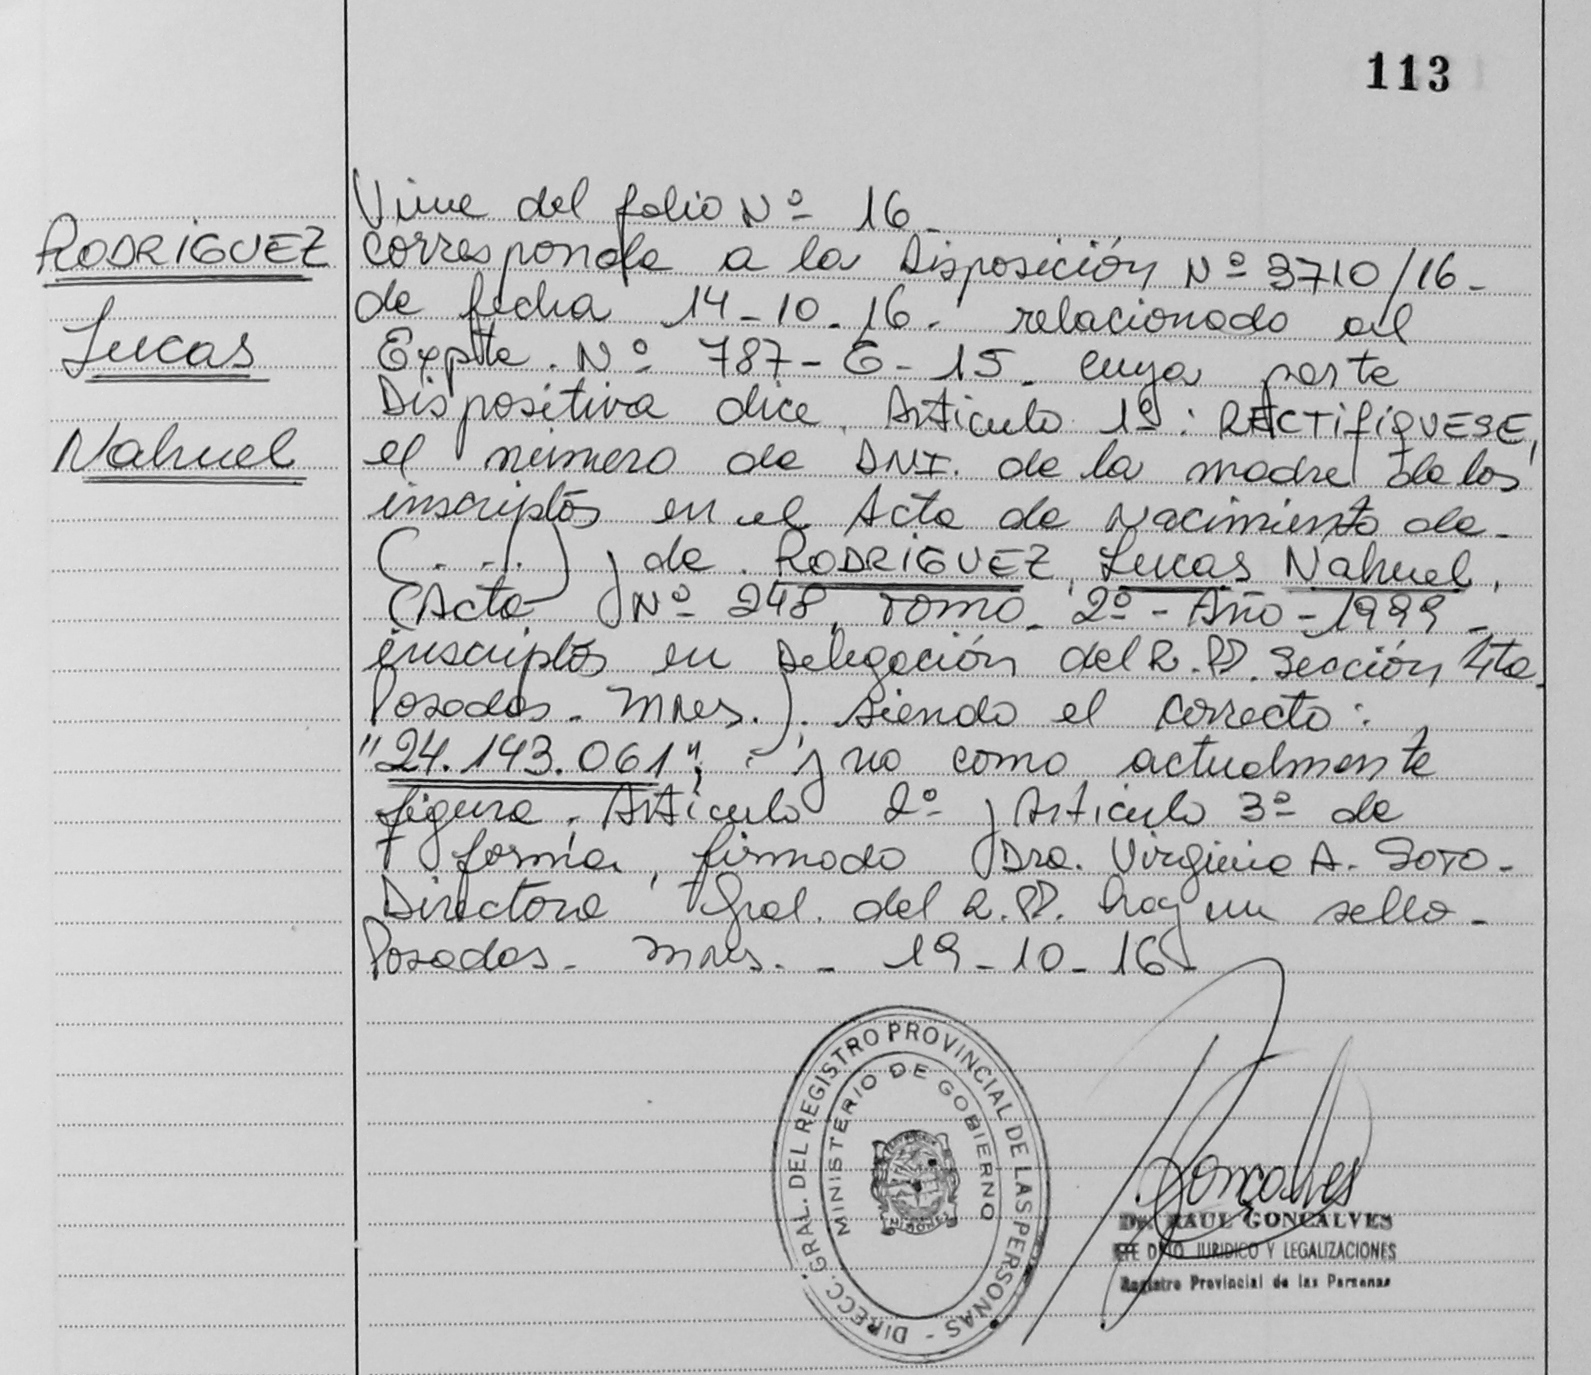 113
RODRIGUEZ
Lucas
Nahuel
Viene del folio Nº 16_
corresponde a la Disposición Nº 3710/16_
de fecha 14_10_16_ relacionado al
Expte. Nº 787-E-15_ cuya parte
Dispositiva dice, Artículo 1º: RECTIFÍQUESE,
el número de DNI. de la madre de los
inscriptos en el Acta de Nacimiento de_
(....) y de RODRIGUEZ, Lucas Nahuel,
(Acta Nº 248, Tomo_ 2º - Año - 1999_
inscriptos en Delegación del R.PP. Sección 4ta
Posadas_ Mnes.). siendo el correcto:
"24.143.061"; - y no como actualmente
figura, Artículo 2º y Artículo 3º de
forma, firmado Dra. Virginia A. SOTO-
Directora Gral. del R.PP. hay un sello_
Posadas_ Mnes._ 19_10_16_
DIRECC. GRAL. DEL REGISTRO PROVINCIAL DE LAS PERSONAS -
MINISTERIO DE GOBIERNO
MISIONES
Goncalves
Dr. RAUL GONCALVES
JEFE DPTO. JURIDICO Y LEGALIZACIONES
Registro Provincial de las Personas